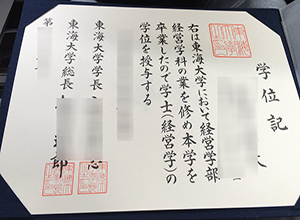 学位記
右は東海大学において経営学部
経営学科の業を修め本学を
卒業したので学士(経営学)の
学位を授与する
東海大学学長
東海大学総長
第